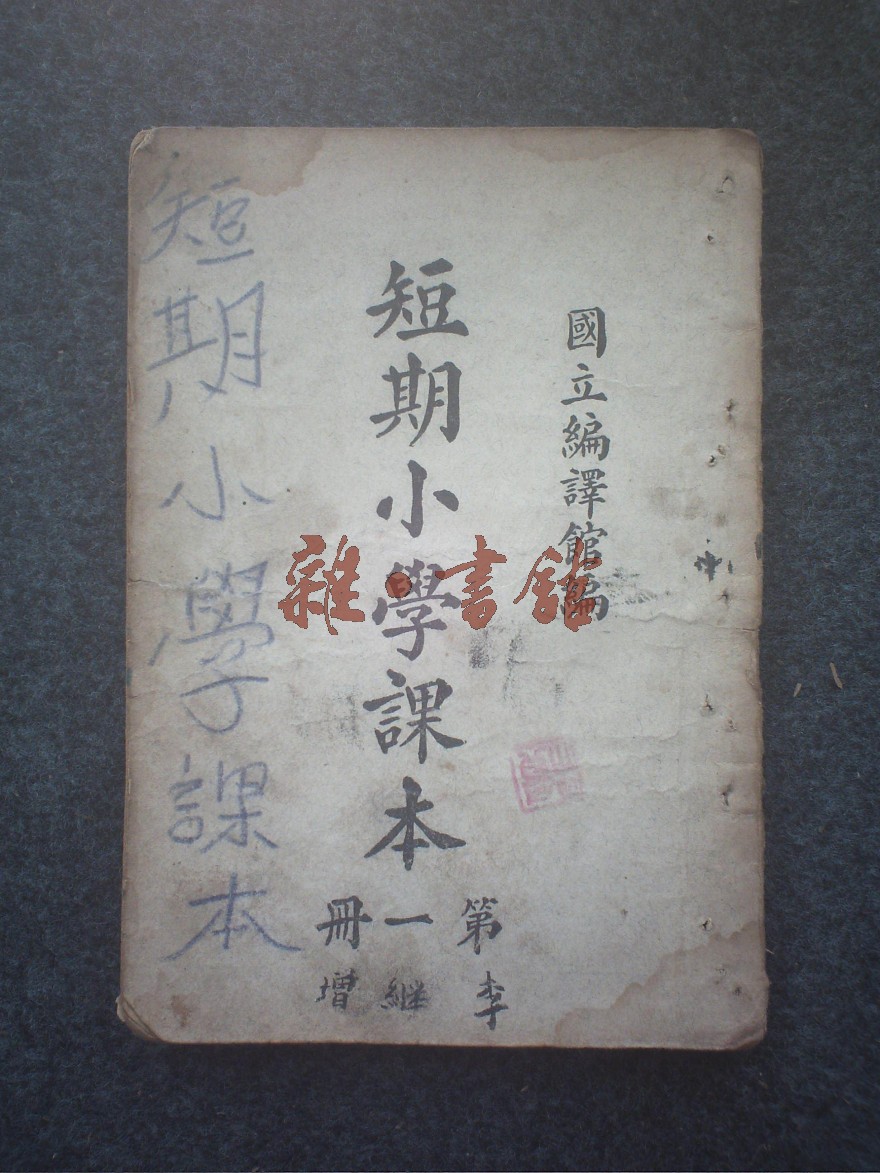 國立編譯館編
短期小學課本
第一冊
李継增
短期小學課本
雜·書館